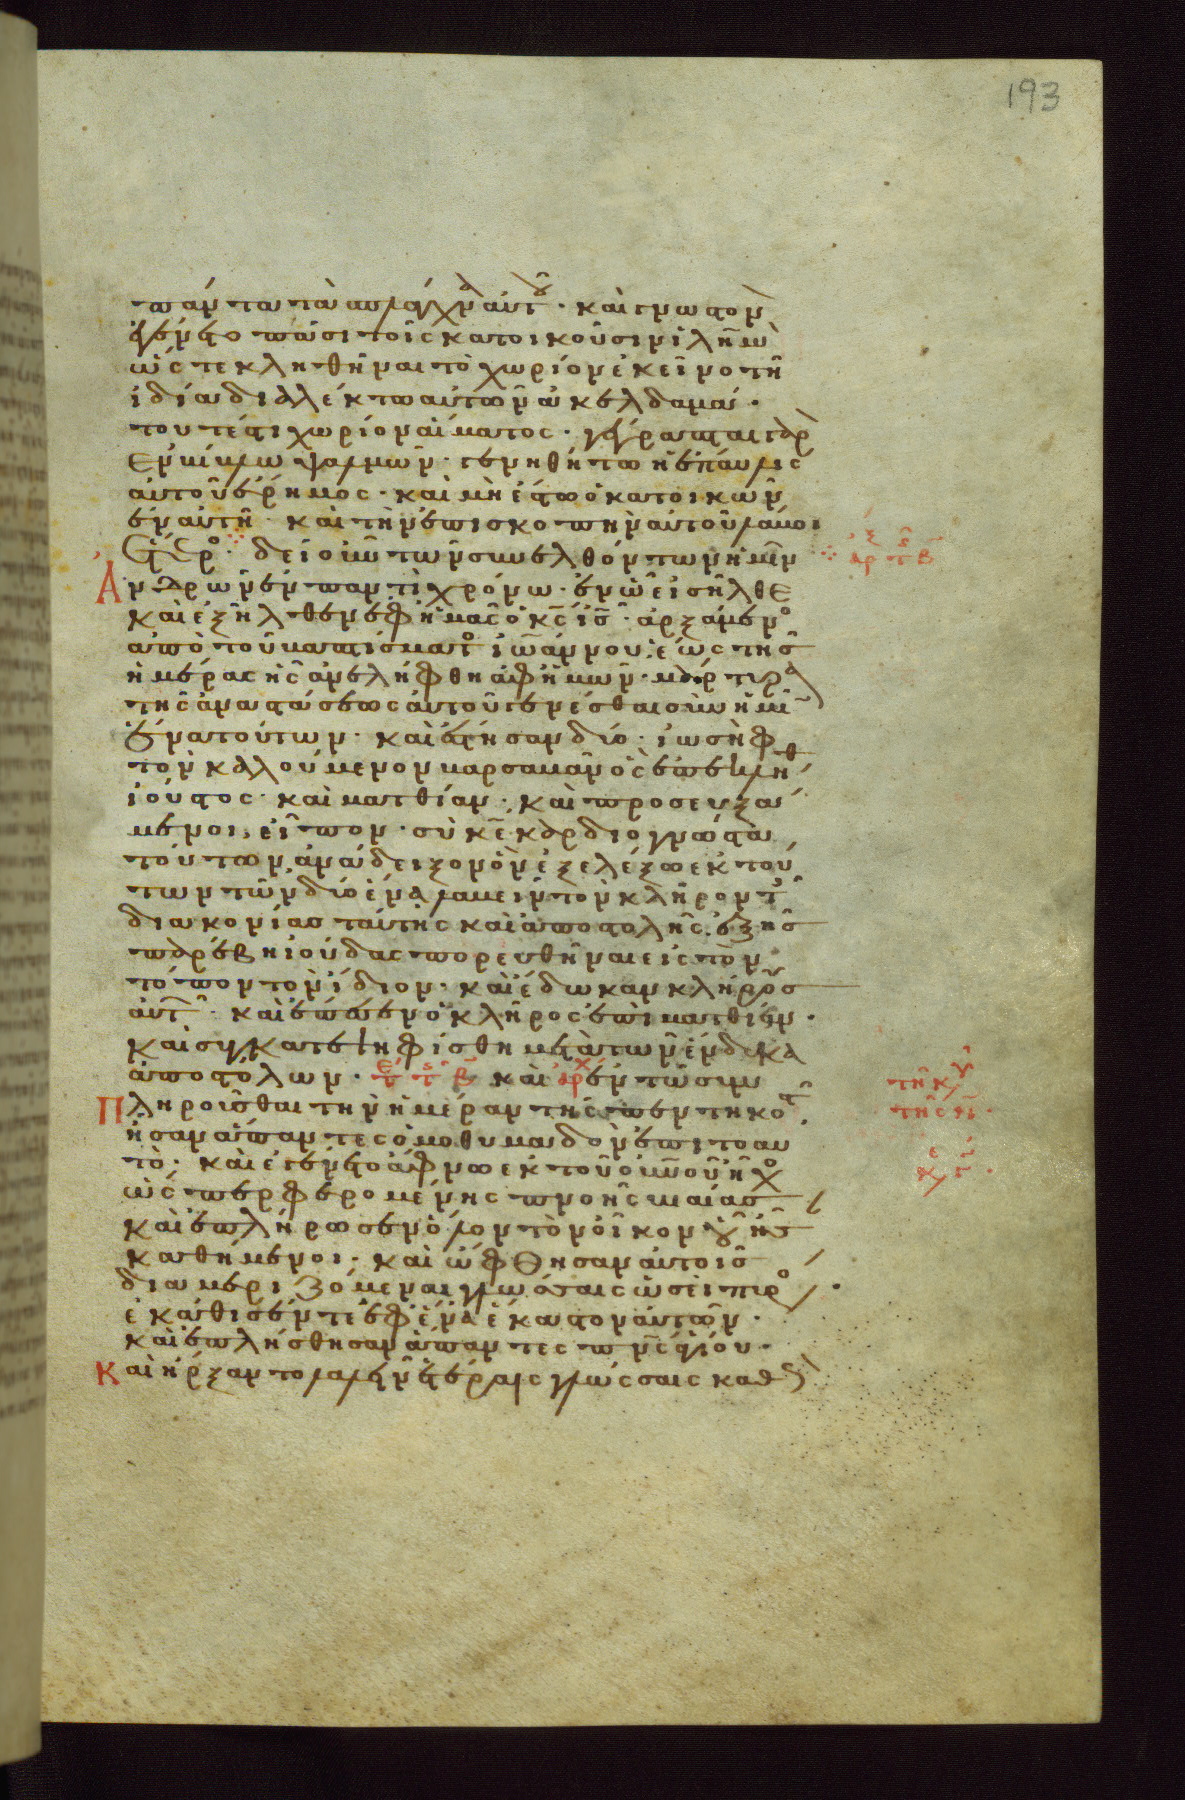 193
πάντα τὰ σπλάγχνα αὐτοῦ · καὶ γνωστὸν
ἐγένετο πᾶσι τοῖς κατοικοῦσιν ἰλῆμ
ὥστε κληθῆναι τὸ χωρίον ἐκεῖνο τῆ
ἰδία διαλέκτω αὐτῶν ἀκελδαμά ·
τουτέστι χωρίον αἵματος · γέγραπται γὰρ
ἐν βίβλω ψαλμῶν · γενηθήτω ἡ ἔπαυλις
αὐτοῦ ἔρημος · καὶ μὴ ἔστω ὁ κατοικῶν
ἐν αὐτῆ · καὶ τὴν ἐπισκοπὴν αὐτοῦ λάβοι
ἕτερο · δεῖ οὖν τῶν συνελθόντων ἡμῖν
ἀνδρῶν ἐν παντὶ χρόνω · ἐν ὧ εἰσῆλθε
καὶ ἐξῆλθεν ἐφ ἡμᾶς ὁ κς ις · ἀρξάμενο
ἀπὸ τοῦ βαπτίσματο ἰωάννου · ἕως τῆς
ἡμέρας ἧς ἀνελήφθη ἀφ ἡμῶν · μάρτυρα
τῆς ἀναστάσεως αὐτοῦ γενέσθαι σὺν ἡμῖ
ἕνα τούτων · καὶ ἔστησαν δύο · ἰωσὴφ
τὸν καλούμενον βαρσαβᾶν ὃς ἐπεκλήθ
ἰοῦστος · καὶ ματθίαν · καὶ προσευξά
μενοι, εἶπον · σὺ κε καρδιογνῶστα
πάντων, ἀνάδειξον ὃν ἐξελέξω ἐκ τού
των τῶν δύο ἕνα λαβεῖν τὸν κλῆρον τ
διακονίας ταύτης καὶ ἀποστολῆς · ἐξ ἧς
παρέβη ἰούδας πορευθῆναι εἰς τὸν
τόπον τὸν ἴδιον · καὶ ἔδωκαν κλήρους
αὐτ · καὶ ἔπεσεν ὁ κλῆρος ἐπὶ ματθίαν ·
καὶ συγκατεψηφίσθη μετὰ τῶν ἕνδεκα
ἀποστόλων · καὶ ἐν τῶ συμ
πληροῦσθαι τὴν ἡμέραν τῆς πεντηκοστ
ἦσαν ἅπαντες ὁμοθυμαδὸν ἐπι το αυ
τὸ · καὶ ἐγένετο ἄφνω ἐκ τοῦ οὐνοῦ ἦχο
ὥσπερ φερομένης πνοῆς βιαίας
καὶ ἐπλήρωσεν ὅλον τὸν οἶκον οὗ ἦσ
καθήμενοι · καὶ ὤφθησαν αὐτοῖς
διαμεριζόμεναι γλῶσσαι ὡσεὶ πυρο
ἐκάθισέν τε ἐφ ἕνα ἕκαστον αὐτῶν ·
καὶ ἐπλήσθησαν ἅπαντες πνς ἁγίου ·
καὶ ἤρξαντο λαλεῖν ἑτέραις γλώσσαις καθ